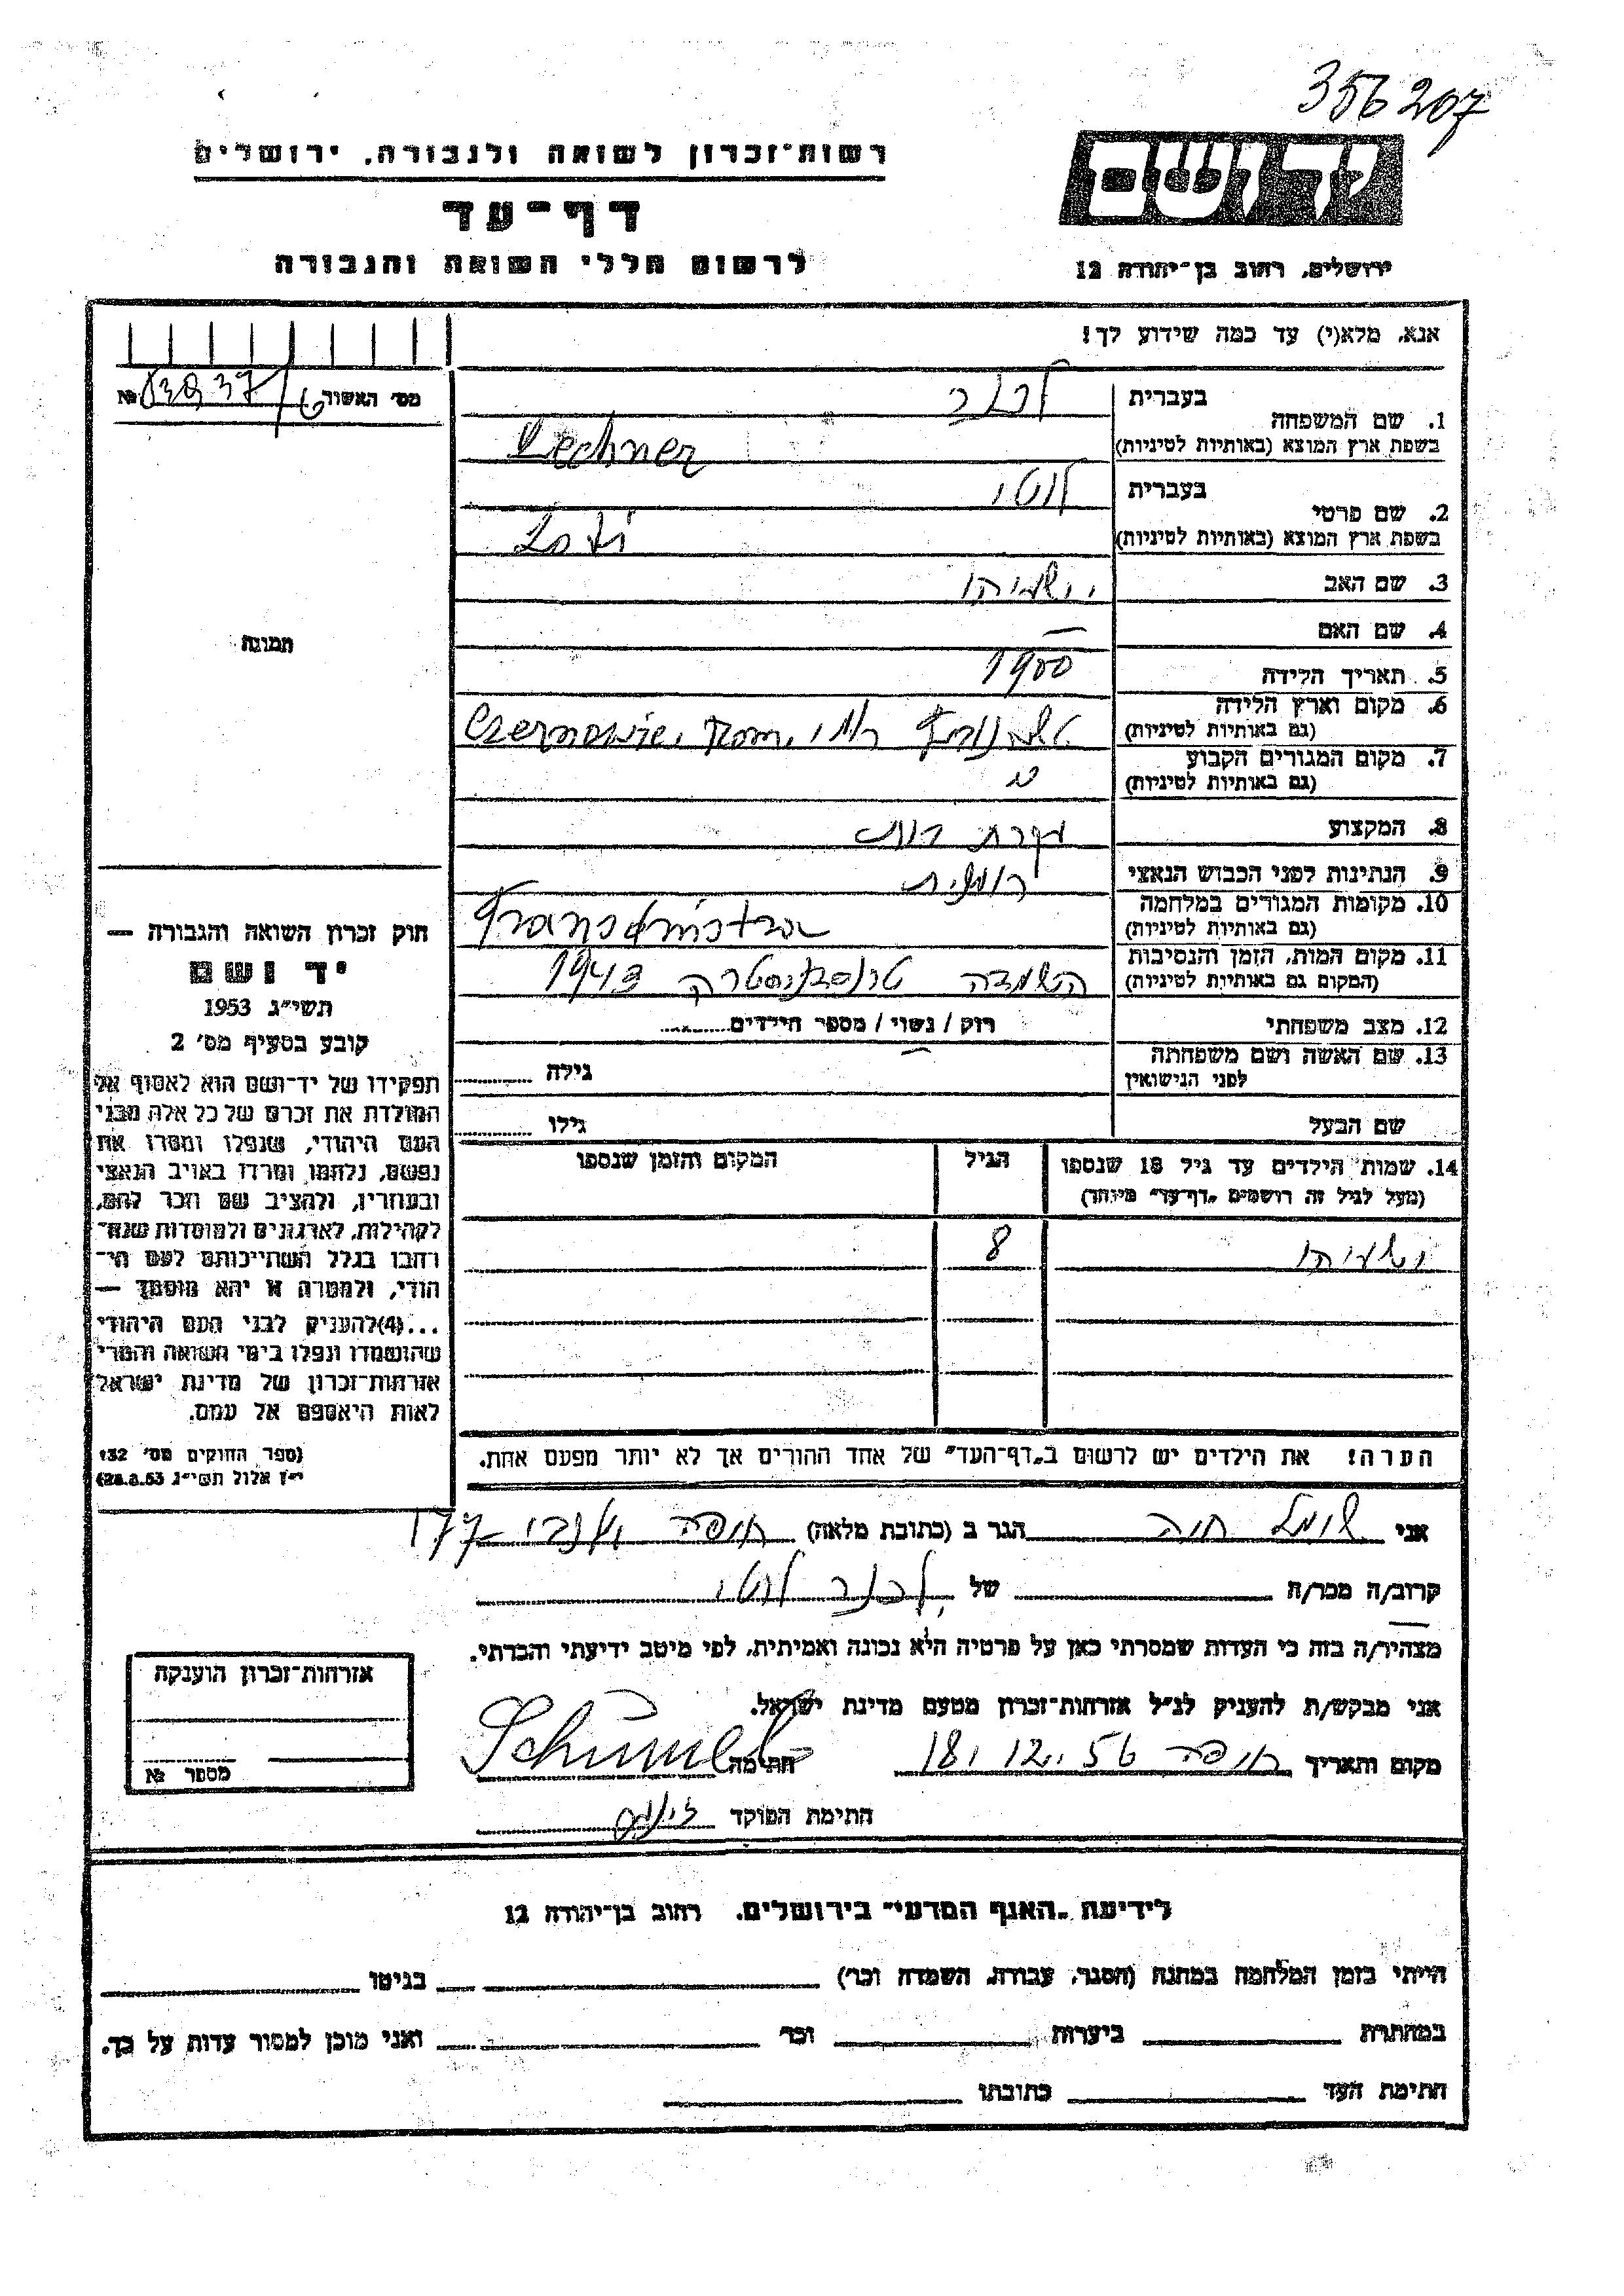 356207
רשות־זכרון לשואה ולגבורה, ירושלים
דף־עד
לרשום חללי השואה והגבורה
יד ושם
ירושלים, רחוב בן־יהודה 12
אנא, מלא(י) עד כמה שידוע לך!
מס׳ האשור №
1. שם המשפחה
בעברית לכנר
בשפת ארץ המוצא (באותיות לטיניות) Lechner
2. שם פרטי
בעברית לוטי
בשפת ארץ המוצא (באותיות לטיניות) Loti
3. שם האב ישעיהו
4. שם האם —
5. תאריך הלידה 1900
6. מקום וארץ הלידה
(גם באותיות לטיניות) Czernowitz, Rom.
7. מקום המגורים הקבוע
(גם באותיות לטיניות)
8. המקצוע עקרת בית
9. הנתינות לפני הכבוש הנאצי רומנית
10. מקומות המגורים במלחמה
(גם באותיות לטיניות) Transdnistra
11. מקום המות, הזמן והנסיבות
(המקום גם באותיות לטיניות) השמדה טרנסדניסטרה 1943
12. מצב משפחתי רוק / נשוי / מספר הילדים
13. שם האשה ושם משפחתה
לפני הנישואין — גילה
שם הבעל גילו
14. שמות הילדים עד גיל 18 שנספו הגיל המקום והזמן שנספו
(מעל לגיל זה רושמים „דף־עד״ מיוחד)
ישעיהו 8
הערה! את הילדים יש לרשום ב„דף־העד״ של אחד ההורים אך לא יותר מפעם אחת.
תמונה
חוק זכרון השואה והגבורה —
יד ושם
תשי״ג 1953
קובע בסעיף מס׳ 2
תפקידו של יד־ושם הוא לאסוף אל
המולדת את זכרם של כל אלה מבני
העם היהודי, שנפלו ומסרו את
נפשם, נלחמו ומרדו באויב הנאצי
ובעוזריו, ולהציב שם וזכר להם,
לקהילות, לארגונים ולמוסדות שנח־
רבו בגלל השתייכותם לעם הי־
הודי, ולמטרה זו יהא מוסמך —
...(4)להעניק לבני העם היהודי
שהושמדו ונפלו בימי השואה והמרי
אזרחות־זכרון של מדינת ישראל
לאות היאספם אל עמם.
(ספר החוקים מס׳ 132
י״ז אלול תשי״ג 28.8.53)
אני שומל חוה הגר ב (כתובת מלאה) חיפה 177
קרוב/ה מכר/ה של לכנר לוטי
מצהיר/ה בזה כי העדות שמסרתי כאן על פרטיה היא נכונה ואמיתית, לפי מיטב ידיעתי והכרתי.
אני מבקש/ת להעניק לנ״ל אזרחות־זכרון מטעם מדינת ישראל.
מקום ותאריך חיפה 18.12.56 חתימה
חתימת הפוקד
אזרחות־זכרון הוענקה
מספר №
לידיעת „האגף המדעי״ בירושלים, רחוב בן־יהודה 12
הייתי בזמן המלחמה במחנה (הסגר, עבודת, השמדה וכו׳) בגיטו
במחתרת ביערות וכו׳ ואני מוכן למסור עדות על כך.
חתימת העד כתובתו